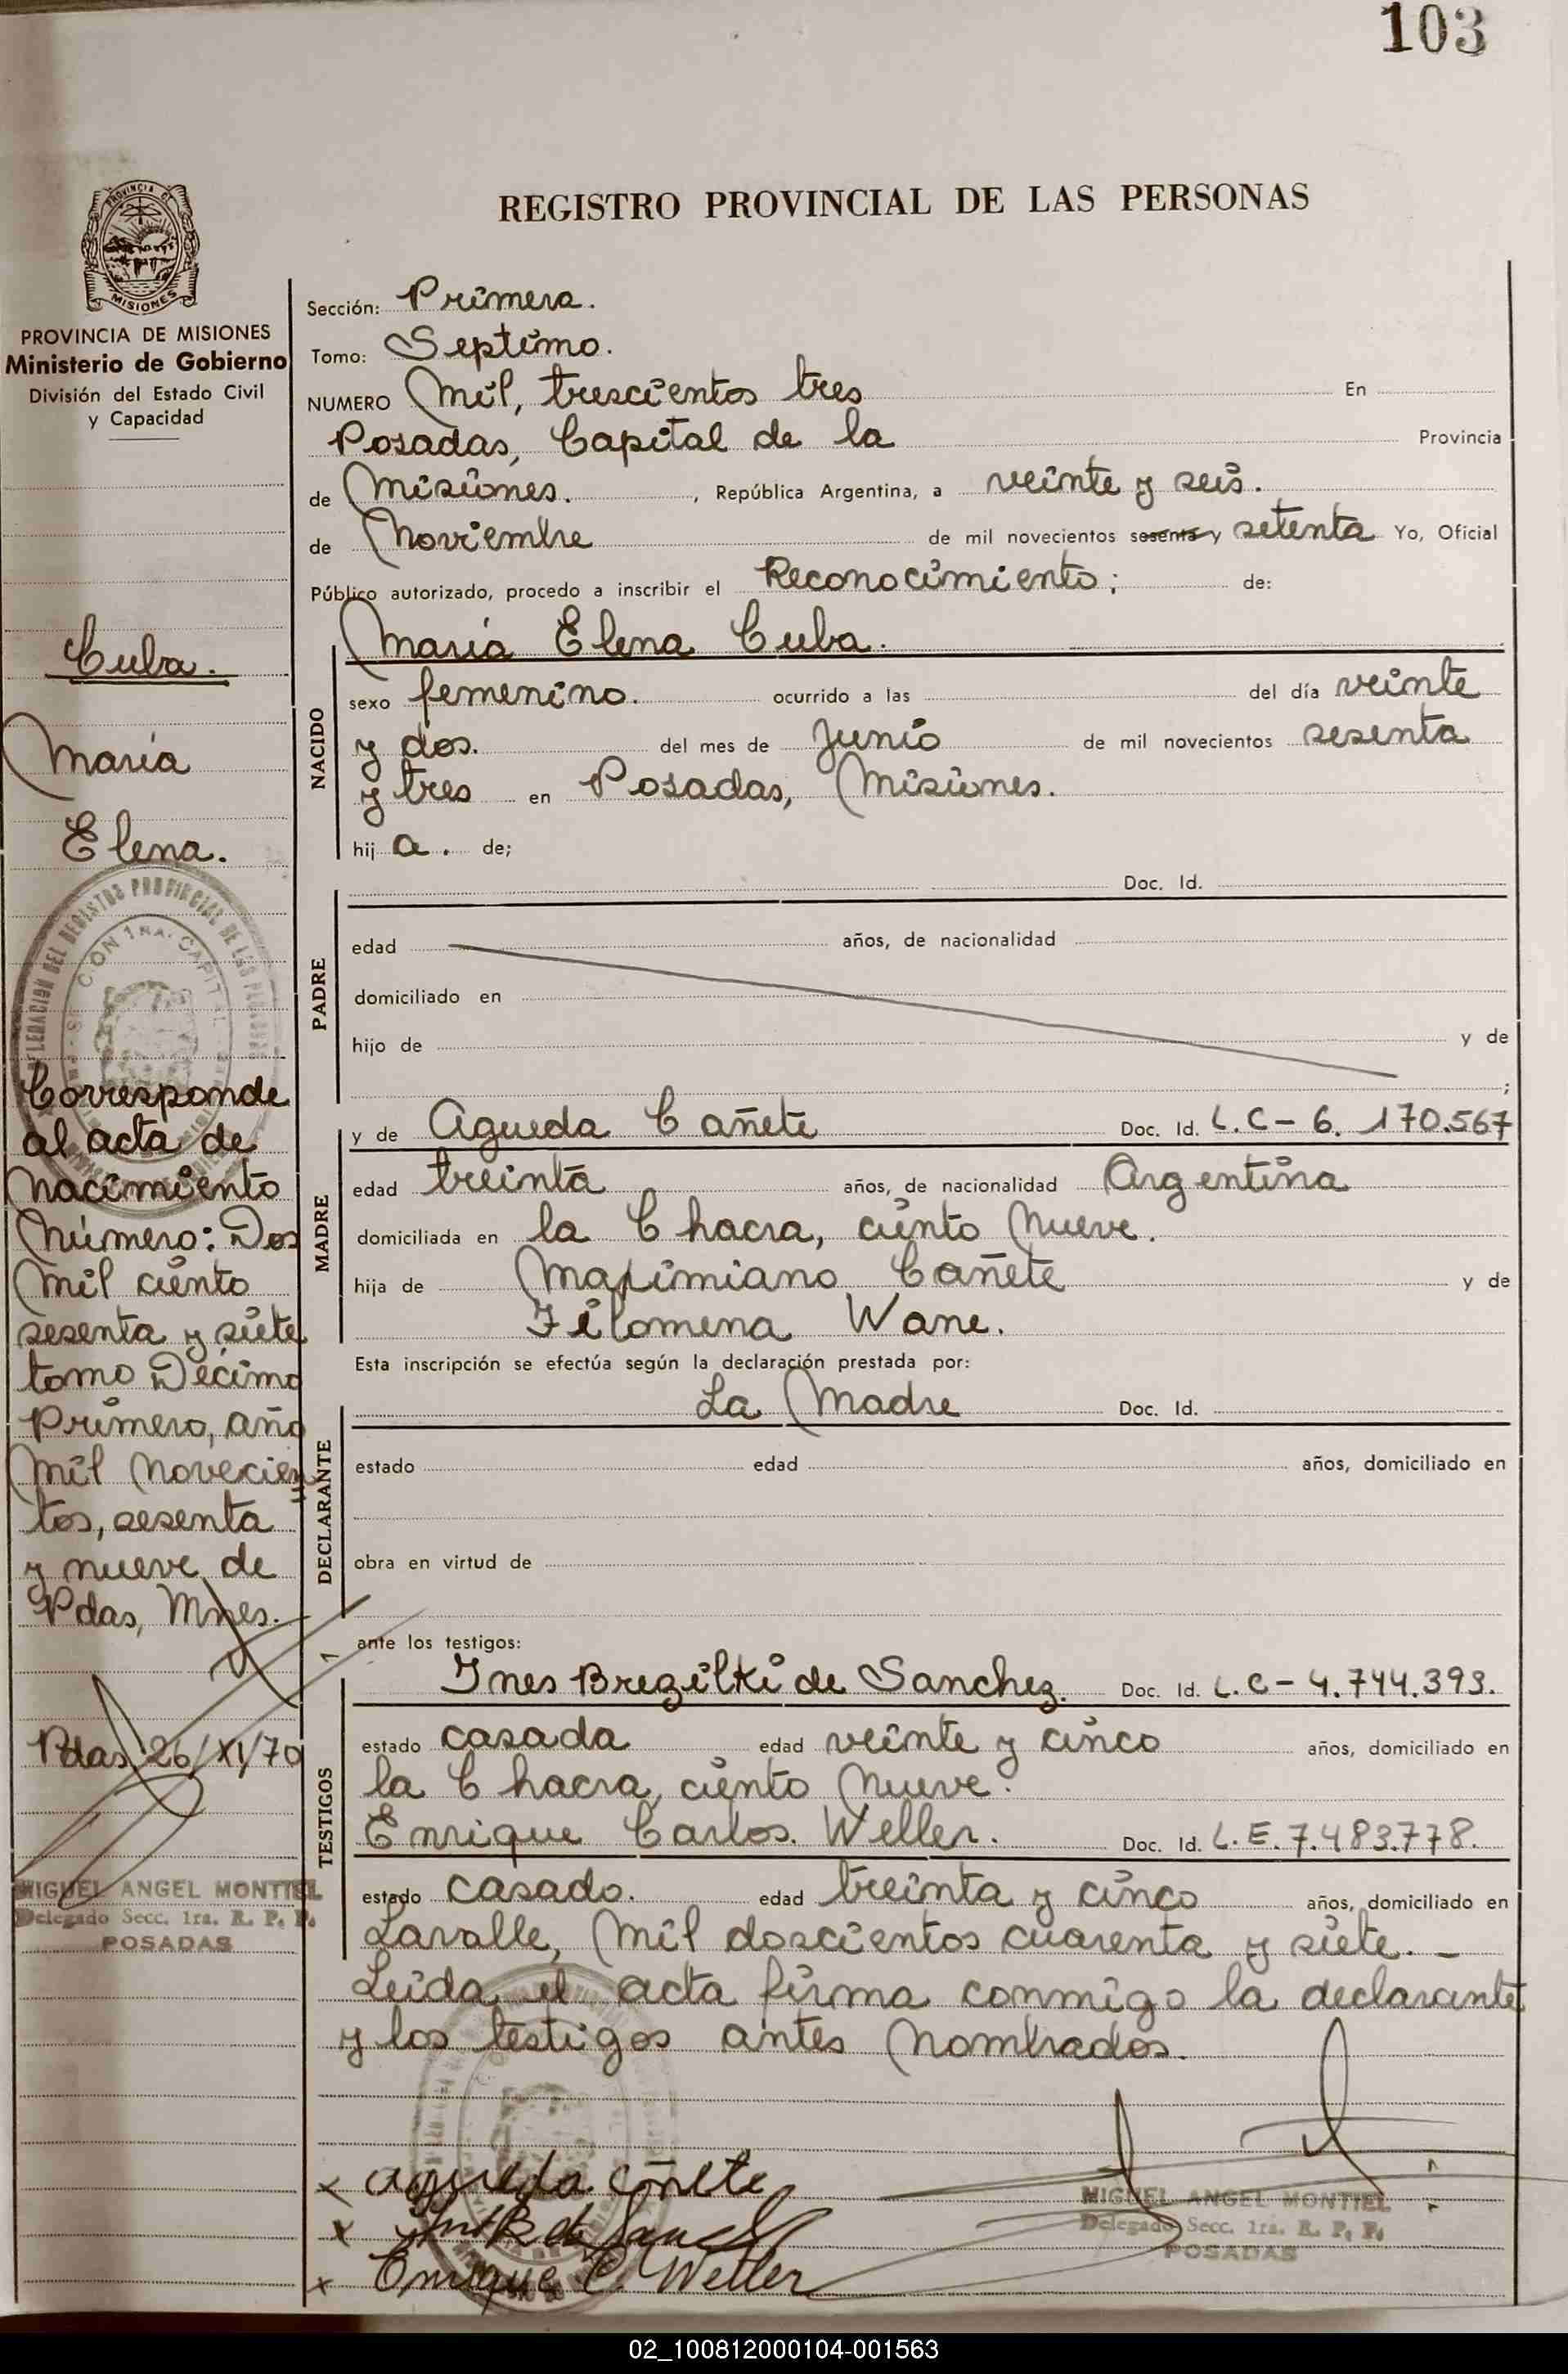 103
REGISTRO PROVINCIAL DE LAS PERSONAS
PROVINCIA DE MISIONES
Ministerio de Gobierno
División del Estado Civil
y Capacidad
Cuba.
María
Elena.
Corresponde
al acta de
nacimiento
Número: Dos
Mil ciento
sesenta y siete
tomo Décimo
Primero, año
Mil Novecien
tos, sesenta
y nueve de
Pdas, Mnes.
Pdas 26/XI/70
MIGUEL ANGEL MONTIEL
Delegado Secc. 1ra. R. P. P.
POSADAS
Sección: Primera.
Tomo: Septimo.
NUMERO Mil, trescientos tres En
Posadas, Capital de la Provincia
de Misiones. , República Argentina, a veinte y seis.
de Noviembre de mil novecientos sesenta y setenta Yo, Oficial
Público autorizado, procedo a inscribir el Reconocimiento; de:
María Elena Cuba.
NACIDO
sexo femenino. ocurrido a las del día veinte
y dos. del mes de Junio de mil novecientos sesenta
y tres en Posadas, Misiones.
hij a. de;
PADRE
Doc. Id.
edad años, de nacionalidad
domiciliado en
hijo de y de
;
MADRE
y de Agueda Cañete Doc. Id. L.C-6.170.567
edad treinta años, de nacionalidad Argentina
domiciliada en la Chacra, ciento Nueve.
hija de Maximiano Cañete y de
Filomena Wane.
Esta inscripción se efectúa según la declaración prestada por:
DECLARANTE
La Madre Doc. Id.
estado edad años, domiciliado en
obra en virtud de
ante los testigos:
TESTIGOS
Ines Bregilki de Sanchez. Doc. Id. L.C-4.744.393.
estado casada edad veinte y cinco años, domiciliado en
la Chacra, ciento Nueve.
Enrique Carlos Weller. Doc. Id. L.E.7.483.778.
estado casado. edad treinta y cinco años, domiciliado en
Lavalle, Mil doscientos cuarenta y siete. -
Leida el acta firma conmigo la declarante
y los testigos antes Nombrados.
x agueda cañete
x
x Enrique C. Weller
MIGUEL ANGEL MONTIEL
Delegado Secc. 1ra. R. P. P.
POSADAS
02_100812000104-001563